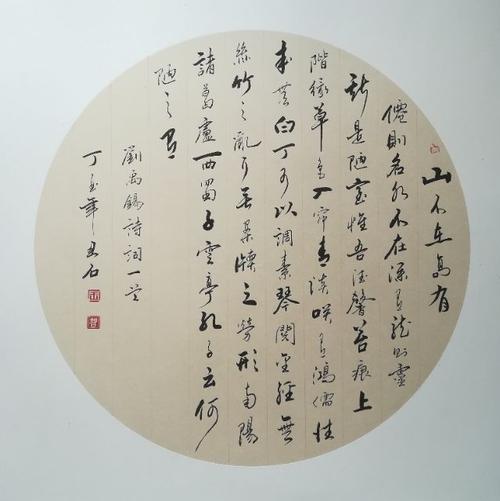 山不在高有
僊則名水不在深有龍則靈
斯是陋室惟吾德馨苔痕上
階綠草色入帘青談咲有鴻儒往
來無白丁可以調素琴閱金經無
絲竹之亂耳無案牘之勞形南陽
諸葛廬西蜀子雲亭孔子云何
陋之有
劉禹錫詩詞一首
丁 年 石